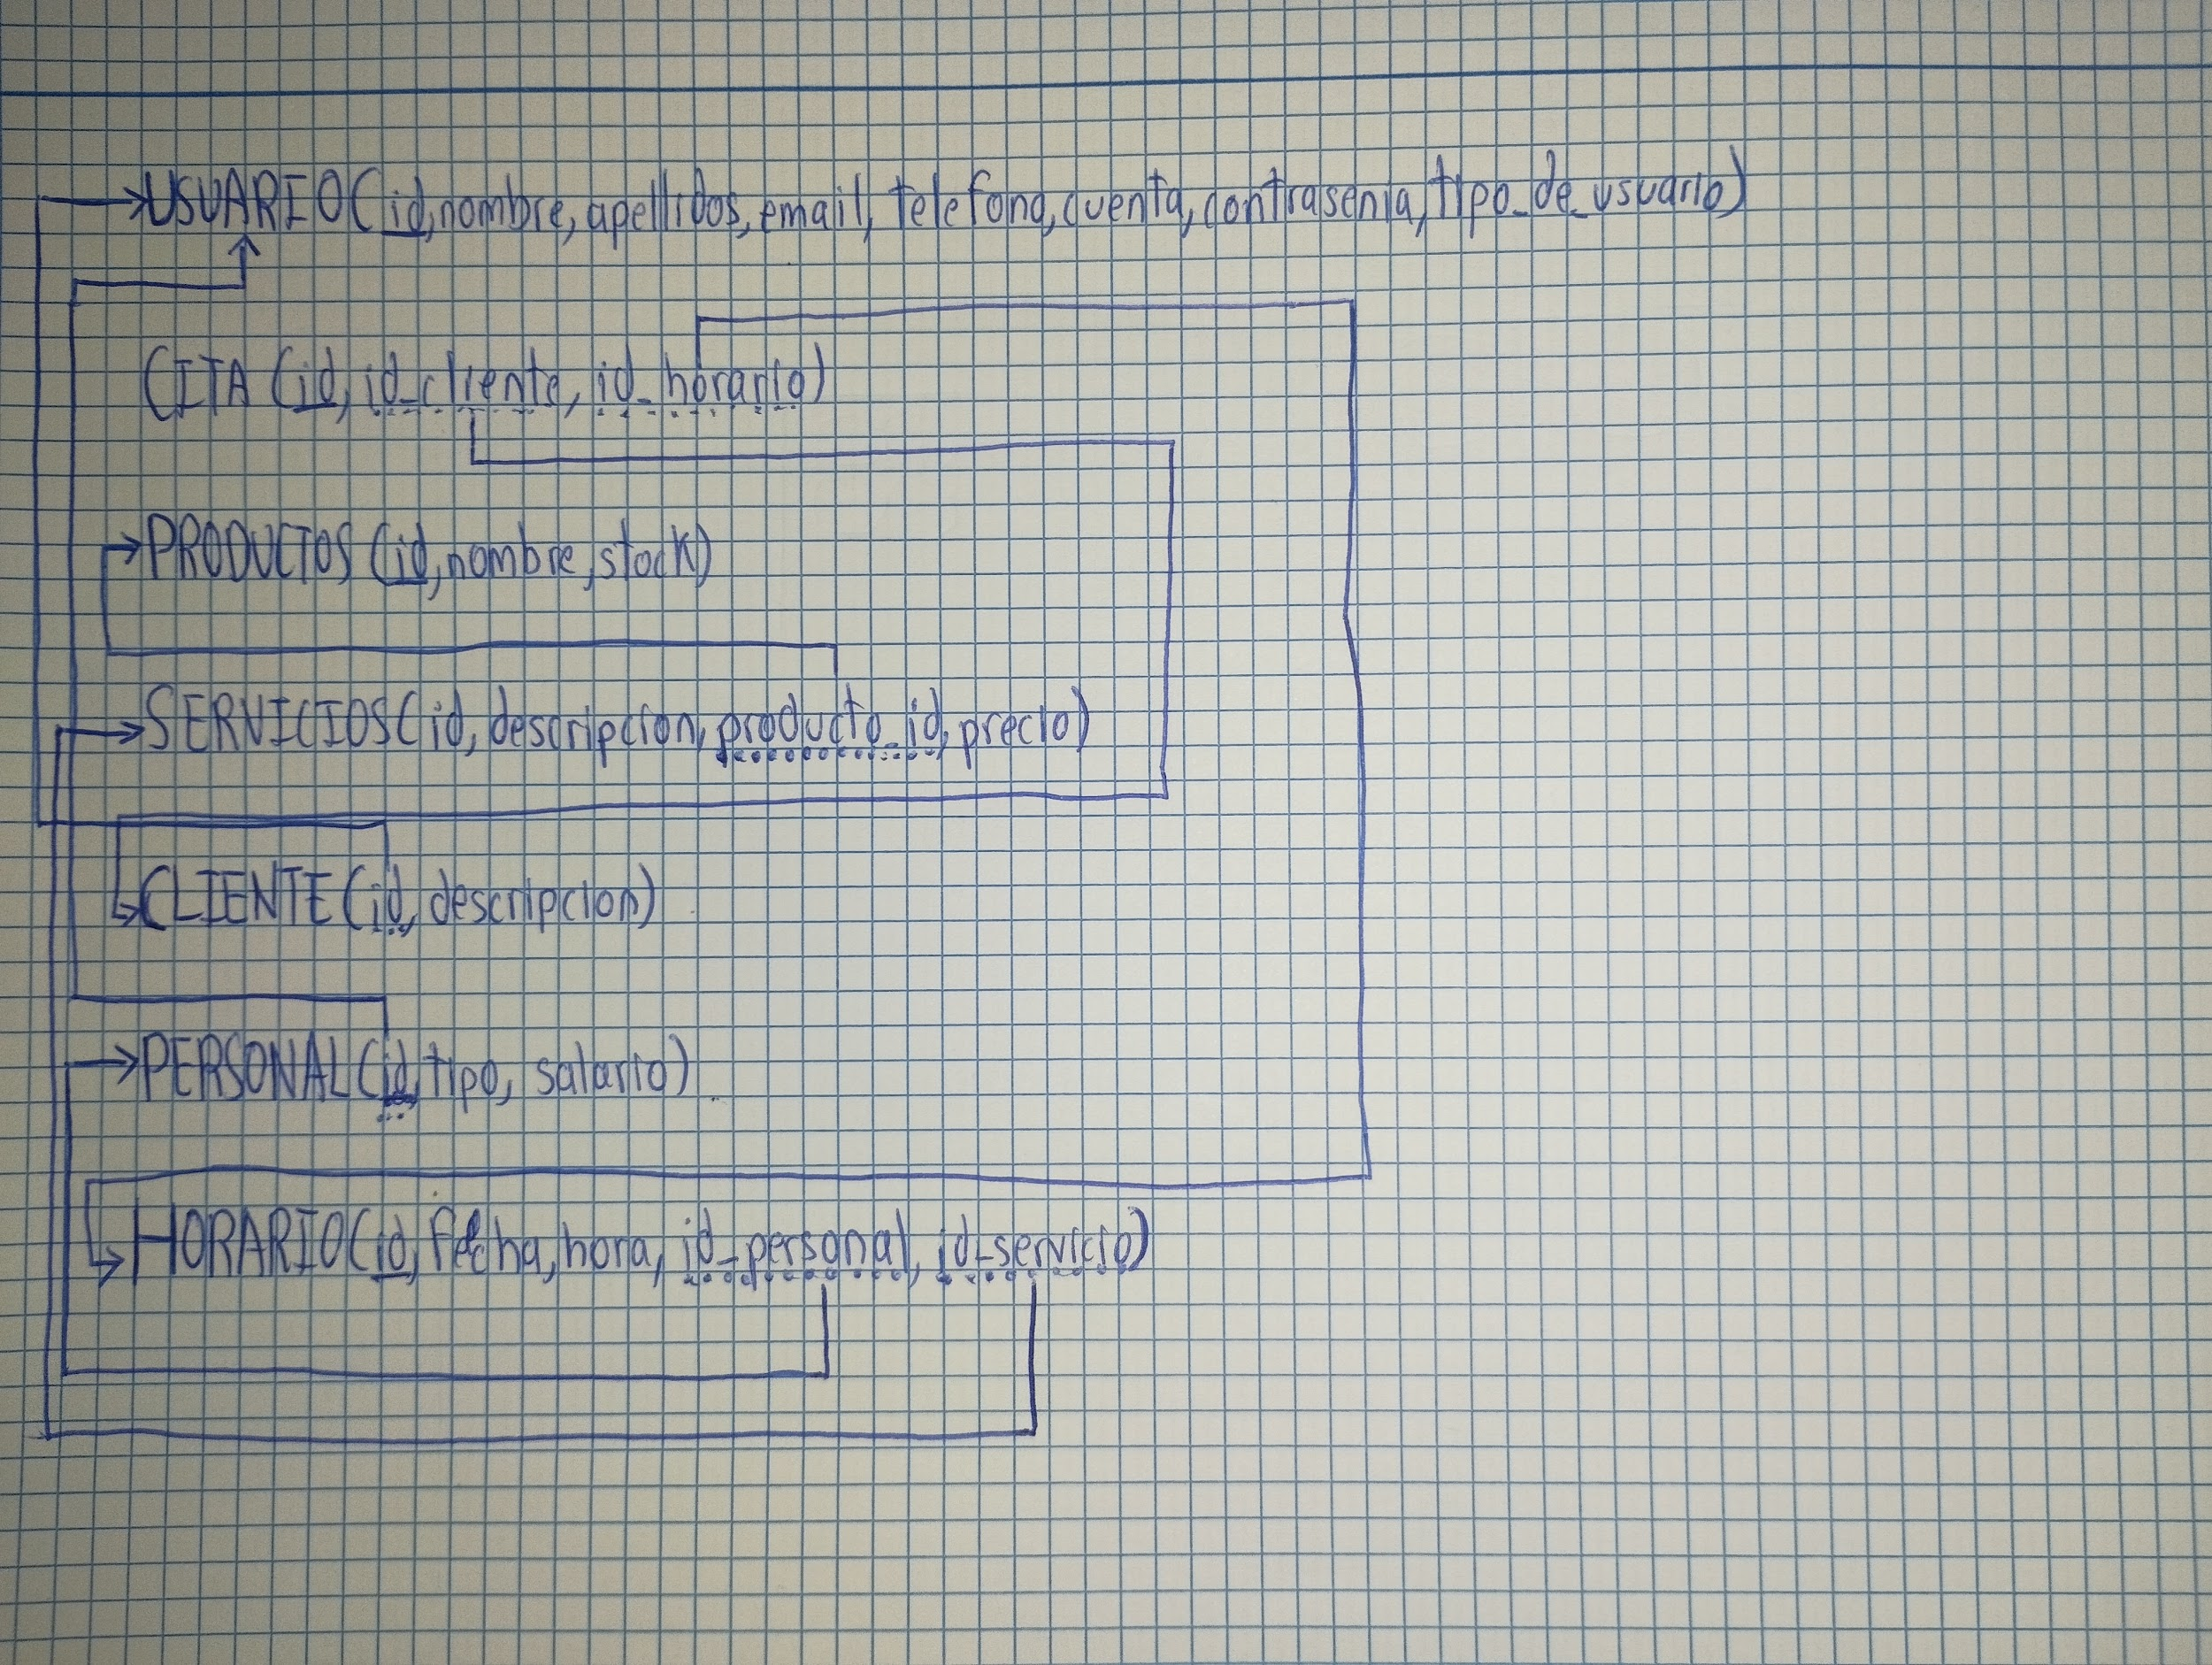 USUARIO(id,nombre, apellidos, email, telefono, cuenta, contrasenia, tipo_de_usuario)
CITA (id, id_cliente, id_horario)
PRODUCTOS (id, nombre, stock)
SERVICIOS(id, descripcion, producto_id, precio)
CLIENTE(id, descripcion)
PERSONAL(id, tipo, salario)
HORARIO(id, fecha, hora, id_personal, id_servicio)